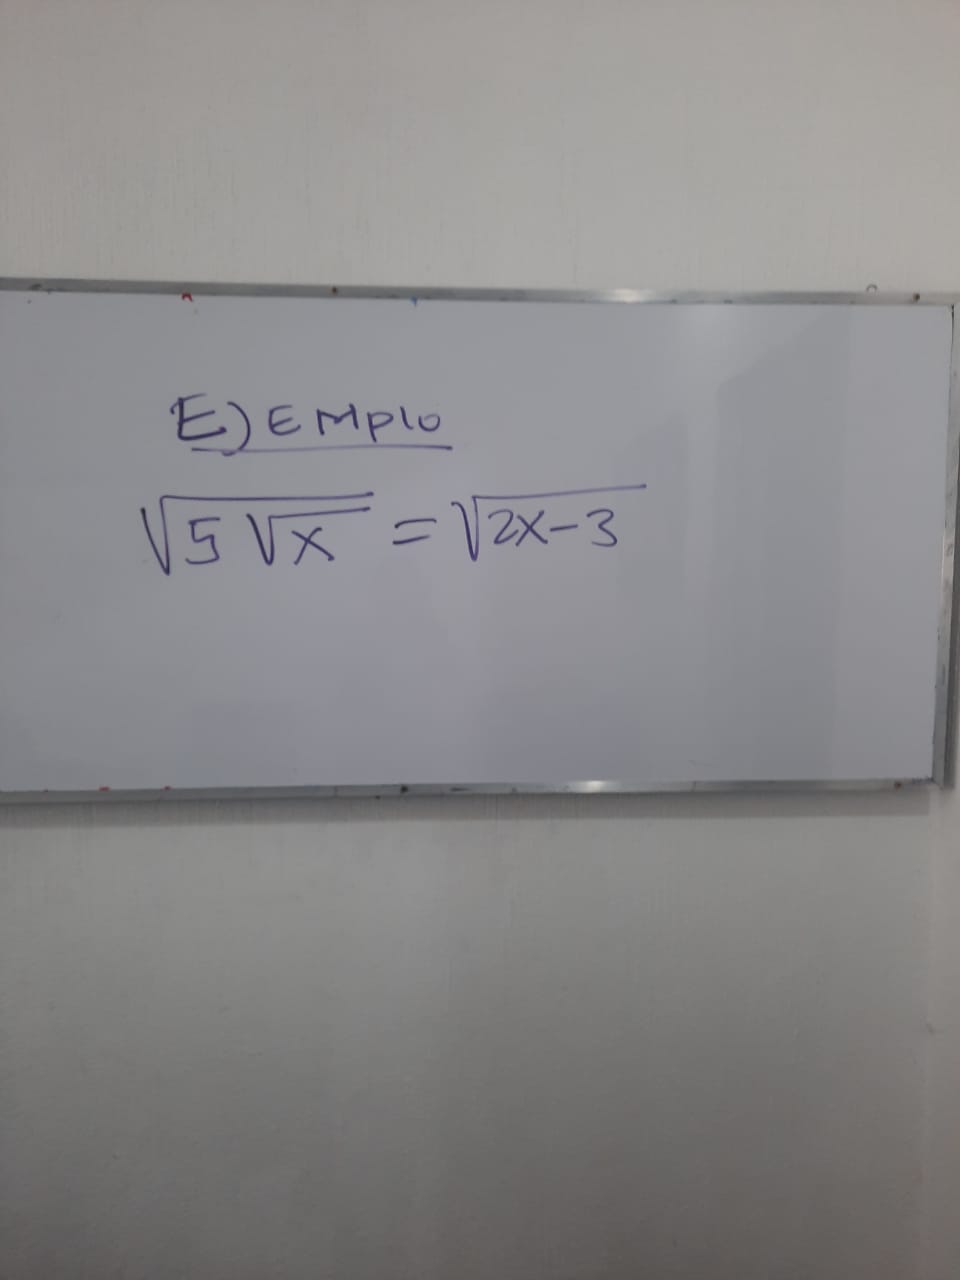 EJEMPLO
√(5√x) = √(2x-3)